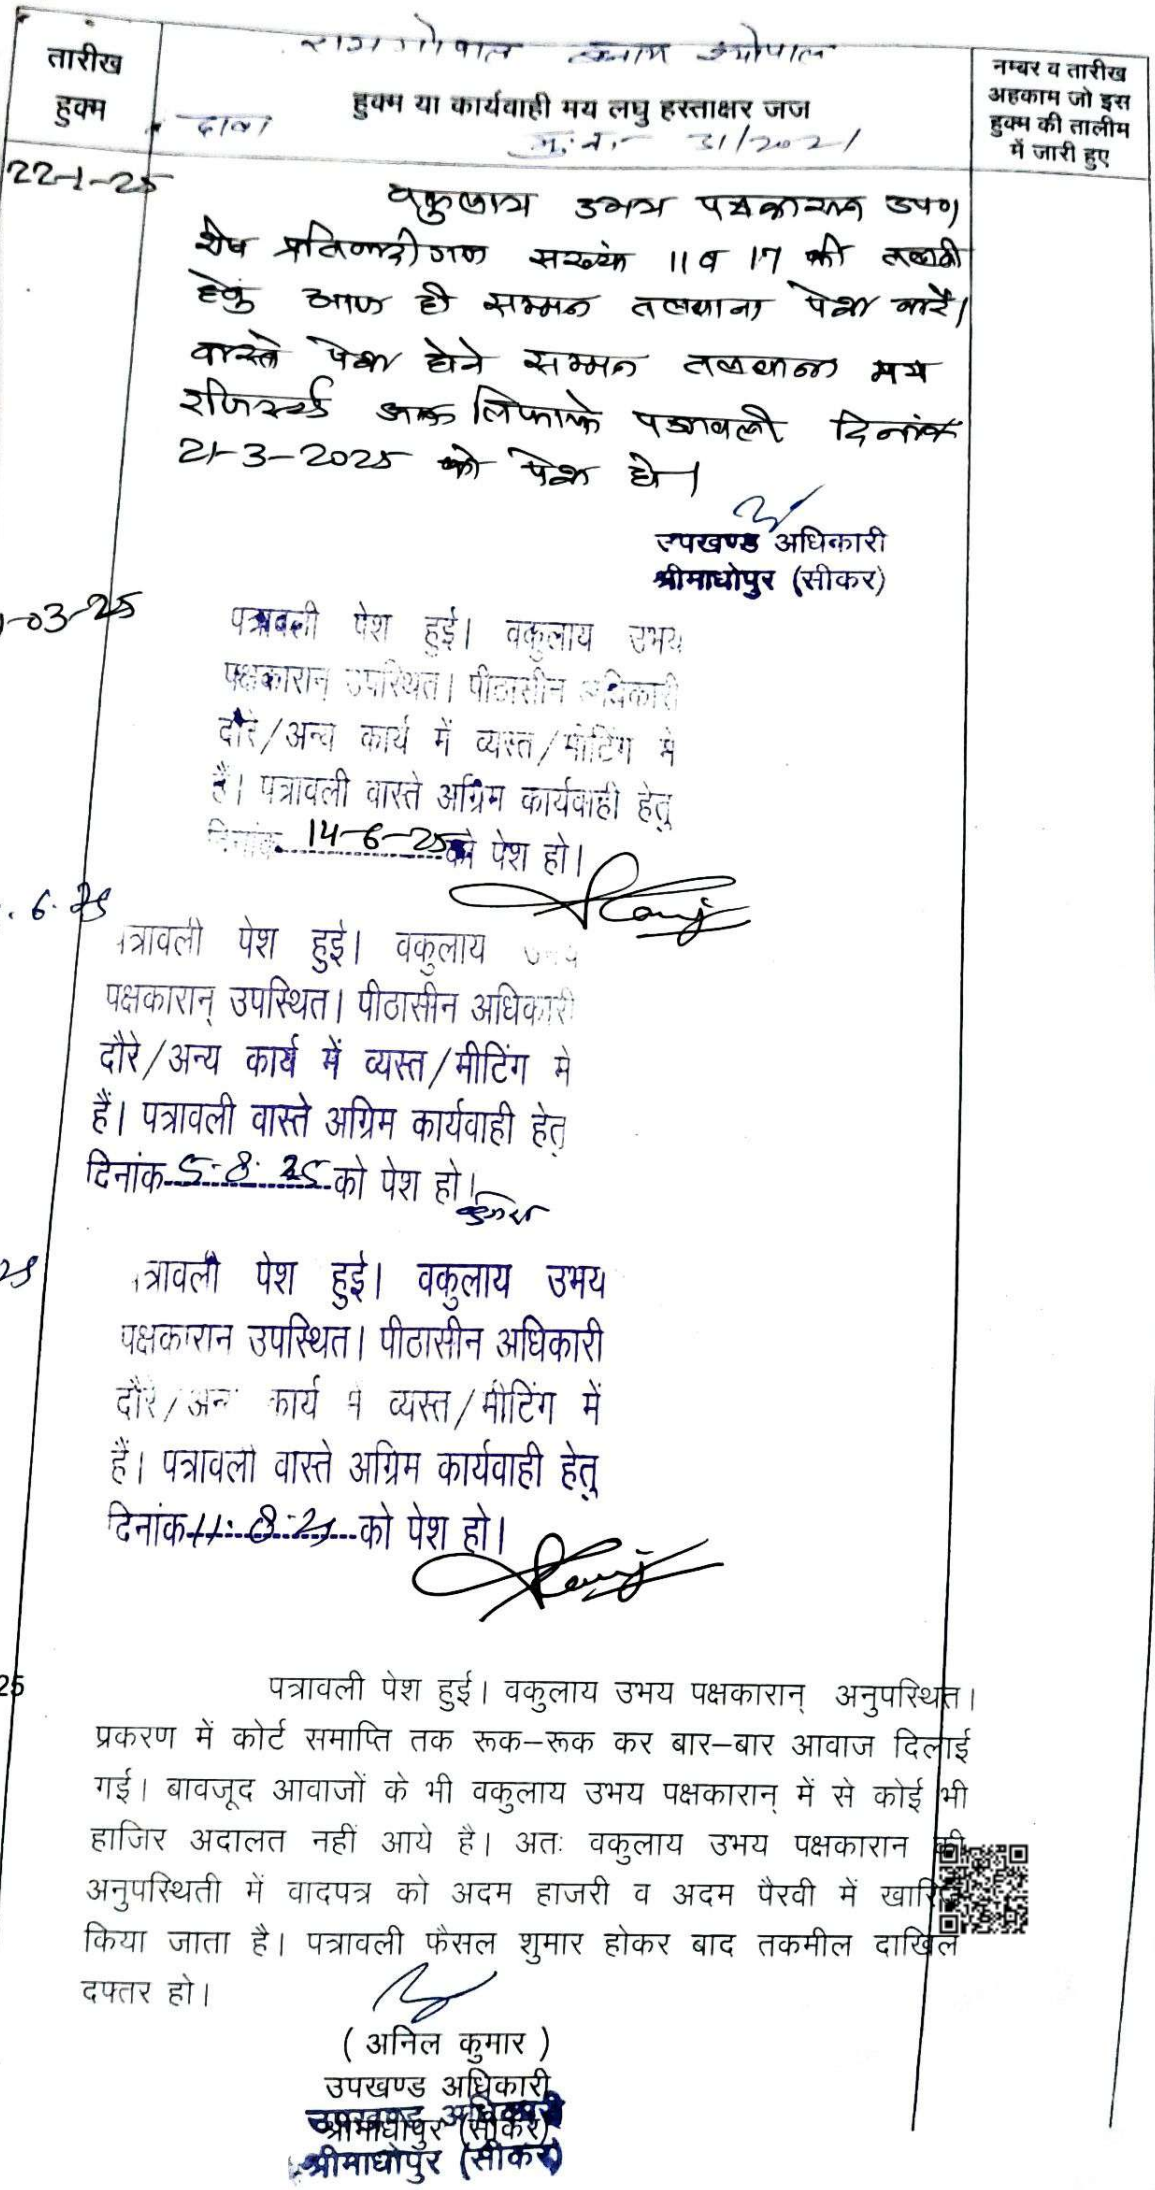 रामगोपाल बनाम गोपाल
तारीख
हुक्म
हुक्म या कार्यवाही मय लघु हस्ताक्षर जज
नम्बर व तारीख
अहकाम जो इस
हुक्म की तालीम
में जारी हुए
दावा
मु.न. 31/2021
22-1-25
वकुलाय उभय पक्षकारान उप०।
शेष प्रतिवादीगण संख्या 11 व 17 की तलबी
हेतु आज ही सम्मन तलवाना पेश करें।
वास्ते पेश होने सम्मन तलवाना मय
रजिस्टर्ड डाक लिफाफे पत्रावली दिनांक
21-3-2025 को पेश हो।
उपखण्ड अधिकारी
श्रीमाधोपुर (सीकर)
-03-25
पत्रावली पेश हुई। वकुलाय उभय
पक्षकारान् उपस्थित। पीठासीन अधिकारी
दौरे/अन्य कार्य में व्यस्त/मीटिंग में
है। पत्रावली वास्ते अग्रिम कार्यवाही हेतु
दिनांक 14-6-25 को पेश हो।
. 6. 25
त्रावली पेश हुई। वकुलाय
पक्षकारान् उपस्थित। पीठासीन अधिकारी
दौरे/अन्य कार्य में व्यस्त/मीटिंग मे
हैं। पत्रावली वास्ते अग्रिम कार्यवाही हेतु
दिनांक 5.8.25 को पेश हो।
25
त्रावली पेश हुई। वकुलाय उभय
पक्षकारान उपस्थित। पीठासीन अधिकारी
दौरे/अन्य कार्य में व्यस्त/मीटिंग में
हैं। पत्रावली वास्ते अग्रिम कार्यवाही हेतु
दिनांक 11.8.25 को पेश हो।
25
पत्रावली पेश हुई। वकुलाय उभय पक्षकारान् अनुपस्थित।
प्रकरण में कोर्ट समाप्ति तक रूक-रूक कर बार-बार आवाज दिलाई
गई। बावजूद आवाजों के भी वकुलाय उभय पक्षकारान् में से कोई भी
हाजिर अदालत नहीं आये है। अतः वकुलाय उभय पक्षकारान की
अनुपस्थिती में वादपत्र को अदम हाजरी व अदम पैरवी में खारिज
किया जाता है। पत्रावली फैसल शुमार होकर बाद तकमील दाखिल
दफ्तर हो।
( अनिल कुमार )
उपखण्ड अधिकारी
श्रीमाधोपुर (सीकर)
उपखण्ड अधिकारी
श्रीमाधोपुर (सीकर)